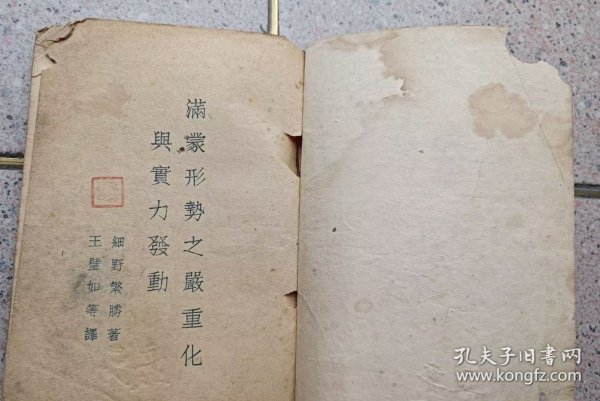 滿蒙形勢之嚴重化
與實力發動
細野繁勝著
王璧如等譯
孔夫子旧书网
www.kongfz.com